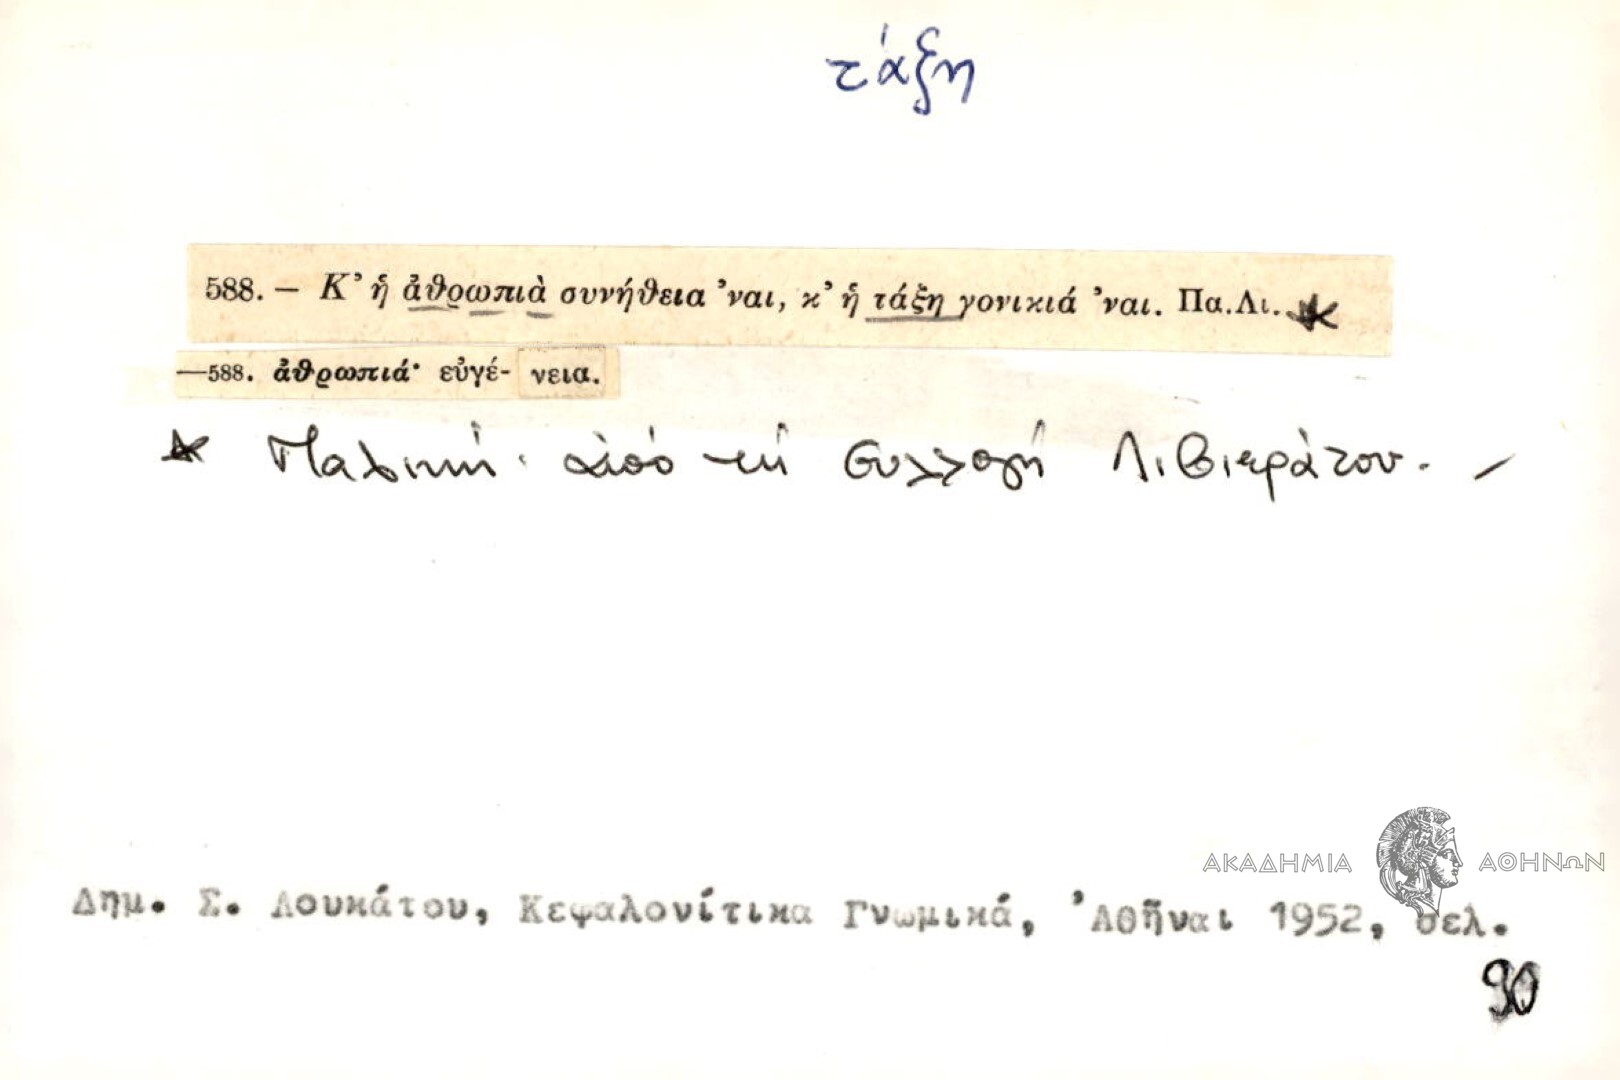 τάξη
588. — Κ’ ἡ ἀθρωπιὰ συνήθεια ’ναι, κ’ ἡ τάξη γονικιά ’ναι. Πα.Λι.
—588. ἀθρωπιά· εὐγένεια.
* Παλική· ἀπό τή συλλογή Λιβιεράτου. –
ΑΚΑΔΗΜΙΑ ΑΘΗΝΩΝ
Δημ. Σ. Λουκάτου, Κεφαλονίτικα Γνωμικά, Ἀθῆναι 1952, σελ.
90